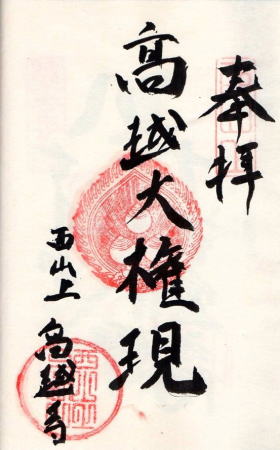 奉拝
高越大権現
西山上
高越寺